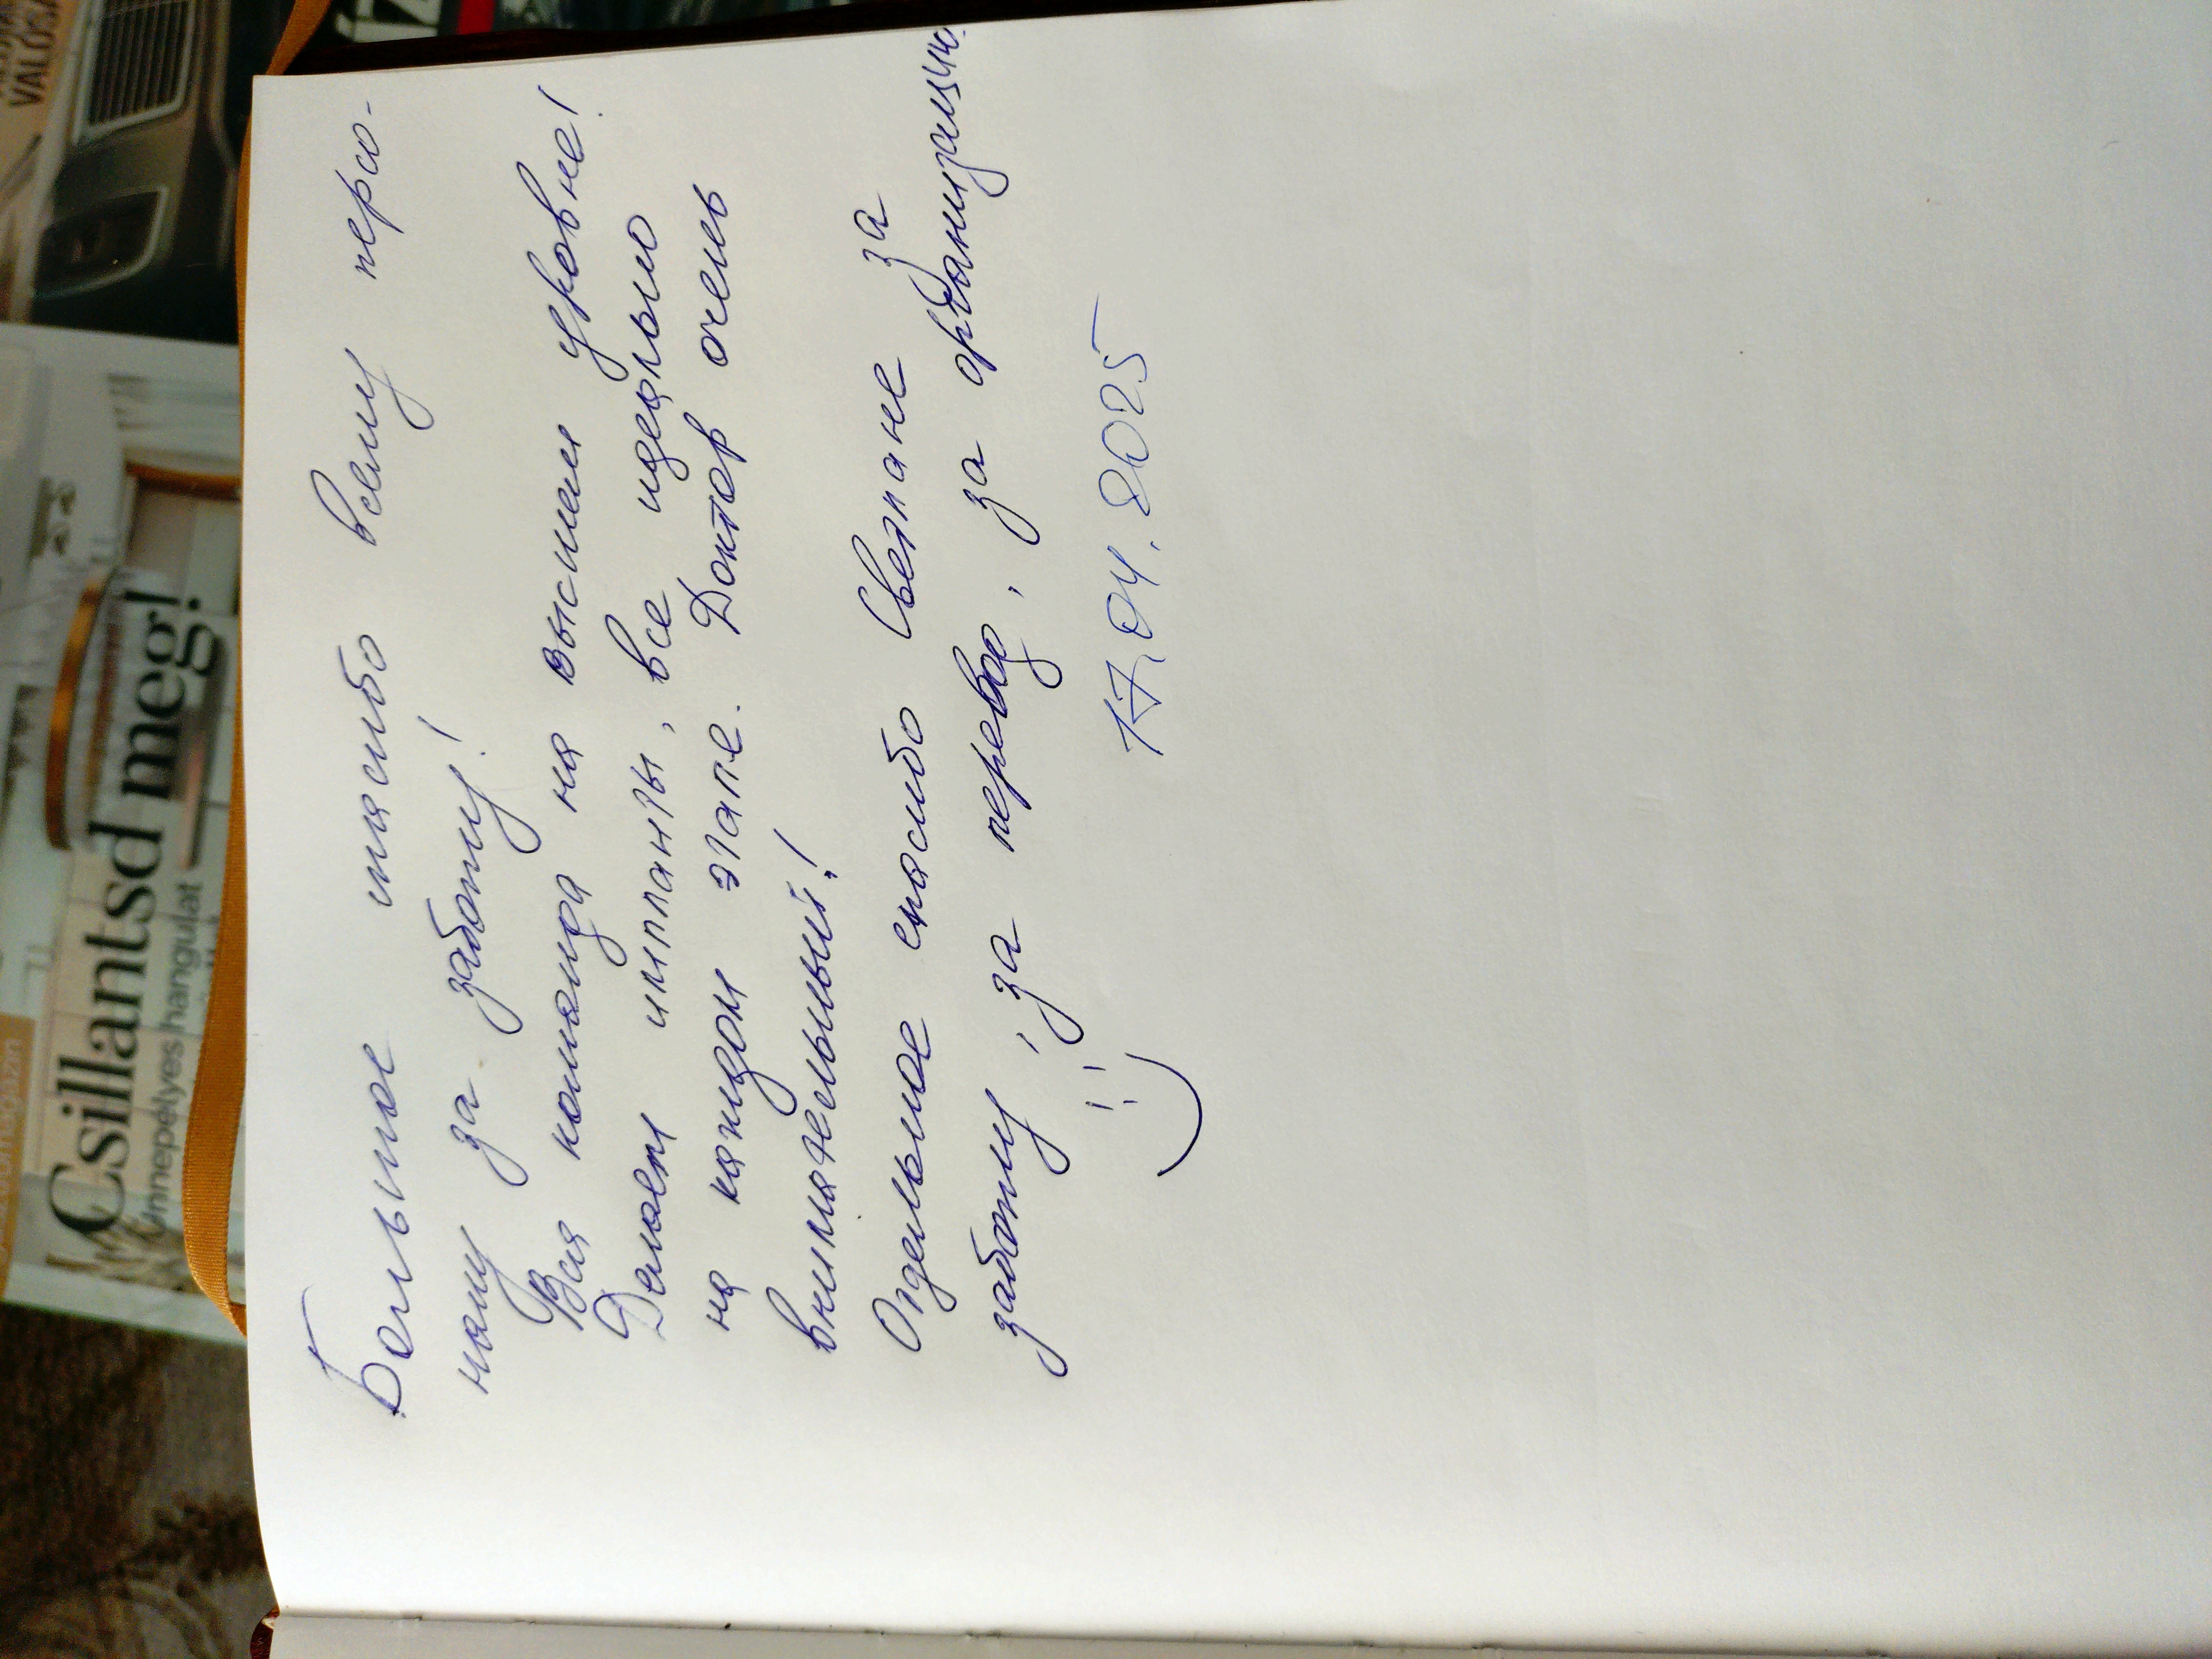 Большое спасибо всему персо-
налу за заботу!
Вся команда на высшем уровне!
Делаем импланты, все идеально
на каждом этапе. Доктор очень
внимательный!
Отдельное спасибо Светлане за
заботу, за перевод, за организацию.
17.04.2025
Csillantsd meg!
Ünnepélyes hangulat